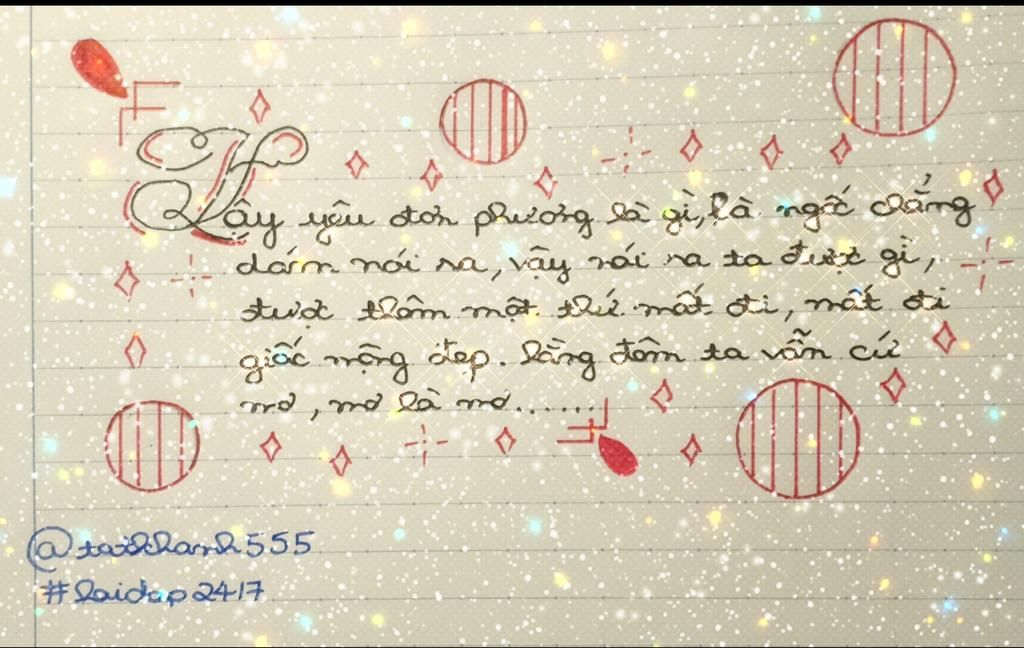 Vậy yêu đơn phương là gì, là ngốc chẳng
dám nói ra, vậy nói ra ta được gì,
được thêm một thứ mất đi, mất đi
giấc mộng đẹp. hằng đêm ta vẫn cứ
mơ, mơ là mơ......
#laidap2417